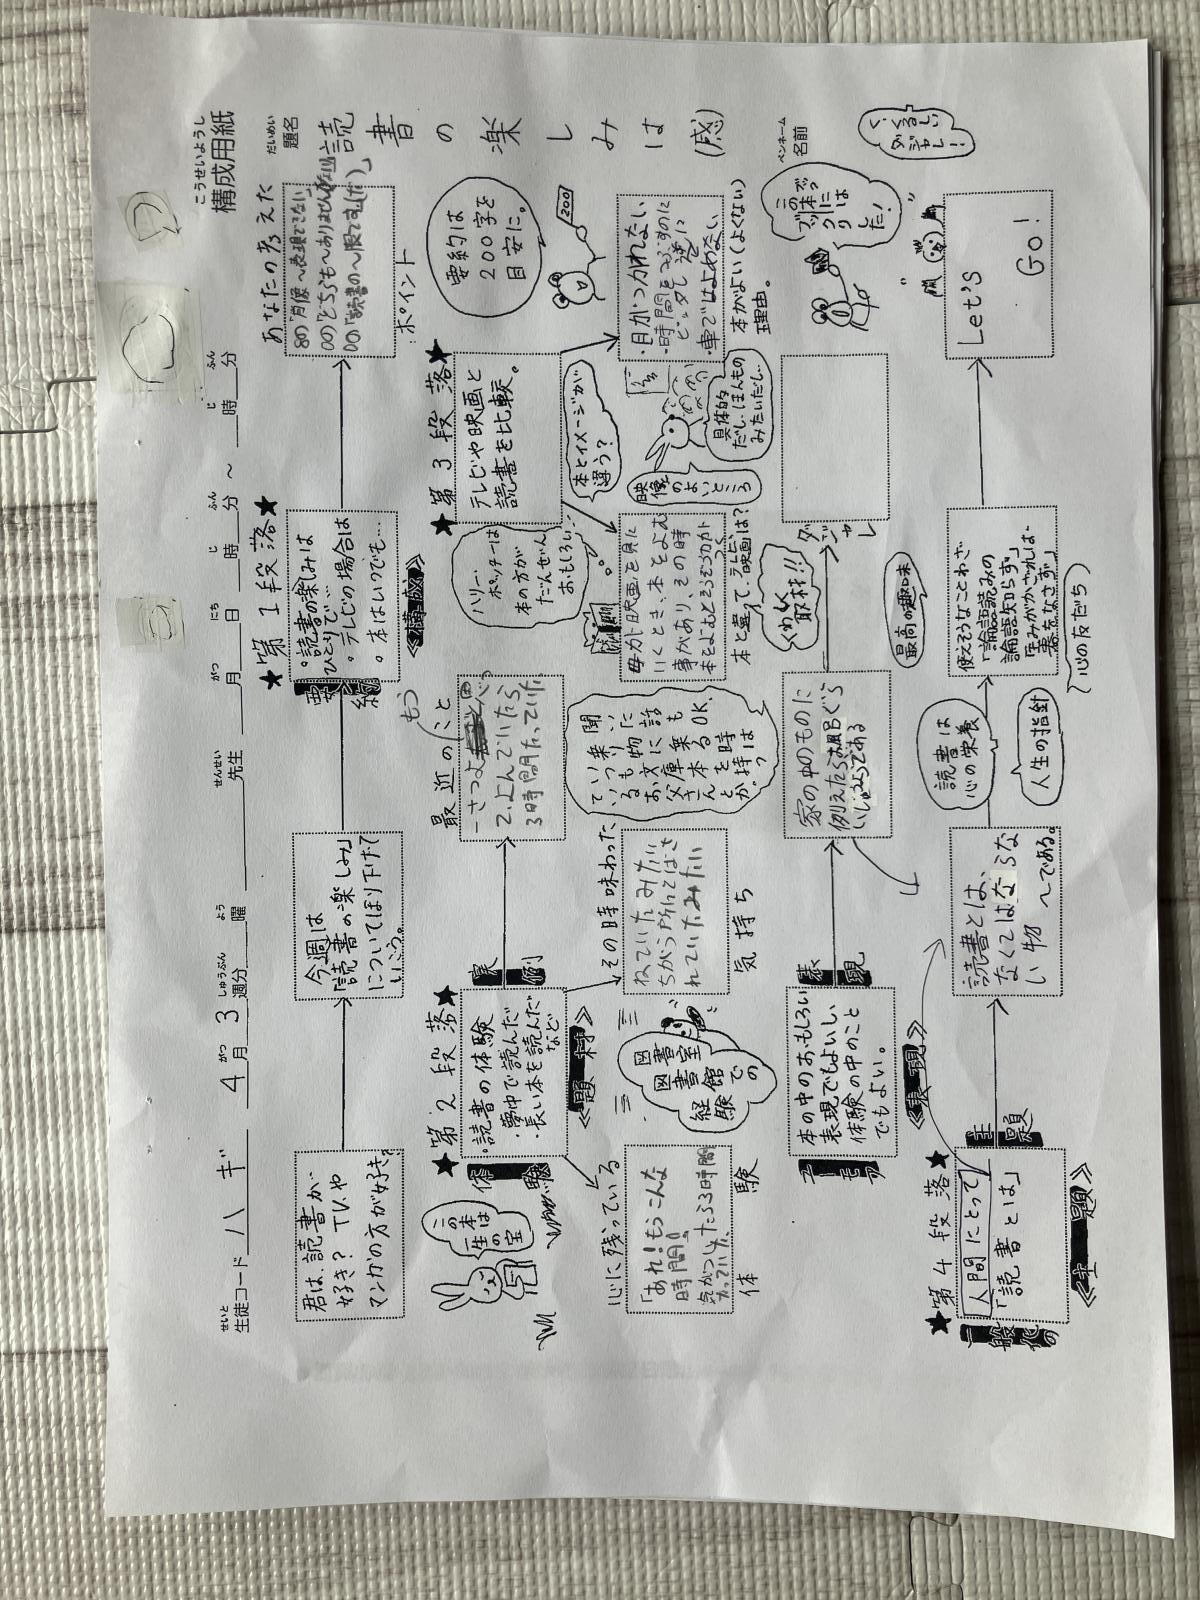 構成用紙
こうせいようし
生徒コード ハギ 4月3週分 曜 先生 月 日 時 分 ～ 時 分
せいと
がつ しゅうぶん よう せんせい がつ にち じ ふん じ ふん
題名
だいめい
読書の楽しみは(感)
名前
ペンネーム
君は、読書が
好き？ TVや
マンガの方が好き。
今週は
「読書の楽しみ」
についてほり下げて
いこう。
★第1段落★
要約
・読書の楽しみは
ひとりで…
・テレビの場合は
・本はいつでも…
≪構成≫
あなたの考えた
ポイント
要約は
200字を
目安に。
200
★第2段落★
体験
実例
・読書の体験
・夢中で読んだ
・長い本を読んだ
など
≪題材≫
この本は
一生の
宝
最近のこと
もう
2、よんでいたら
3時間たっていた
心に残っている
体験
「あれ！もうこんな
時間！！
その時味わった
気持ち
ねていたみたい
ちがう所にとばさ
れていたみたい
図書室
図書館
での
経験
聞いた話もOK。
乗り物に乗る時
いつも文庫本を
持っているお父さんとか。
★第3段落★
テレビや映画と
読書を比較。
ハリー・
ポッターは
本の方が
だんぜん
おもしろい…
本とイメージが
違う？
・目がつかれない
・車ではよめない
本がよい（よくない）
理由。
母が映画を見に
いくとき、本をよむ
事があり、その時
本と違って、テレビ、映画は？
映像
のよいところ
具体的
だし、ほんもの
みたいだし…
ユーモア
表現
本の中のおもしろい
表現でもよいし、
体験の中のこと
でもよい。
≪表現≫
家の中のものに
例えたらお風呂ぐら
いじゅうようである
くわしく
取材！！
ダジャレ
この本には
ブックリ
した！
く、くるしい
ダジャレ！
★第4段落★
一般化の
主題
人間にとって
「読書とは」
≪主題≫
読書とは、
なくてはなら な
い物 ～である。
読書は
心の栄養
人生の指針
最高の趣味
（心の友だち）
使えそうなことわざ
「論語読みの
論語知らず」
「玉みがかざれば
器をなさず」
Let's
Go!